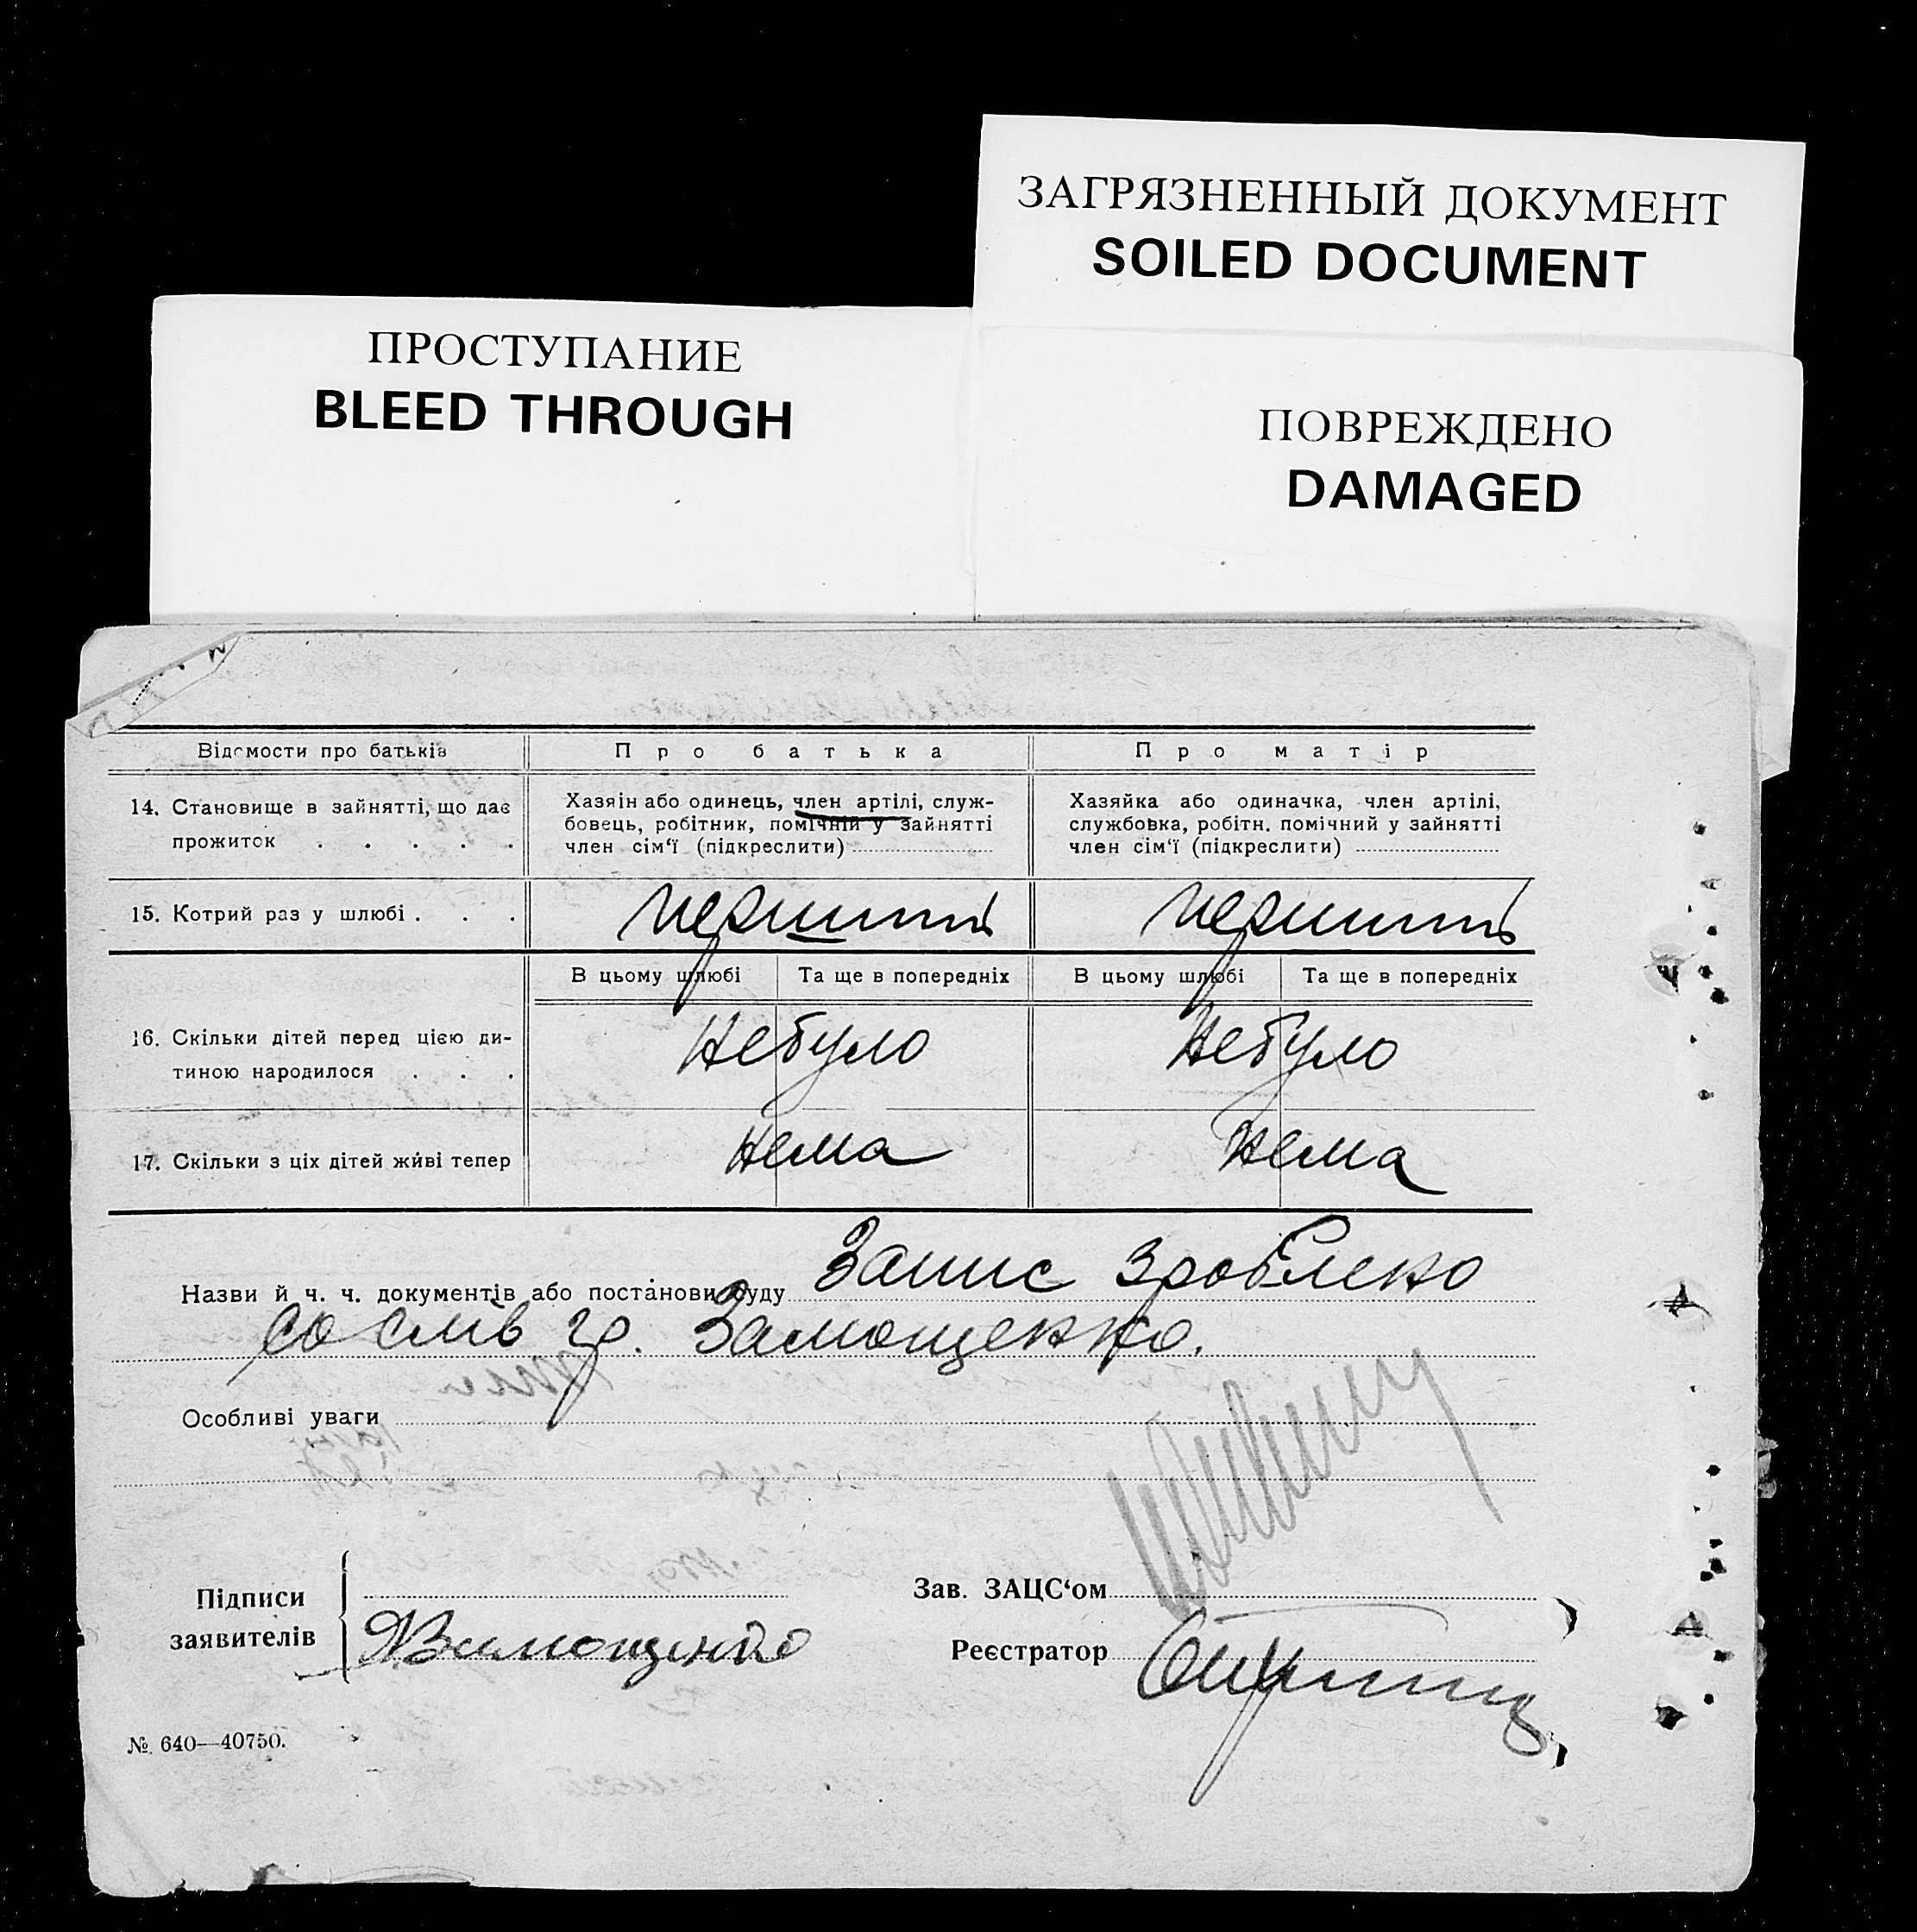 ЗАГРЯЗНЕННЫЙ ДОКУМЕНТ
SOILED DOCUMENT
ПРОСТУПАНИЕ
BLEED THROUGH
ПОВРЕЖДЕНО
DAMAGED
Відомости про батьків
Про батька
Про матір
14. Становище в зайнятті, що дає
прожиток . . . . .
Хазяін або одинець, член артілі, служ-
бовець, робітник, помічній у зайнятті
член сім‘ї (підкреслити)
Хазяйка або одиначка, член артілі,
службовка, робітн. помічний у зайнятті
член сім‘ї (підкреслити)
15. Котрий раз у шлюбі . . .
перший
перший
В цьому шлюбі
Та ще в попередніх
В цьому шлюбі
Та ще в попередніх
16. Скільки дітей перед цією ди-
тиною народилося . . .
Небуло
Небуло
17. Скільки з ціх дітей живі тепер
Нема
Нема
Назви й ч. ч. документів або постанови суду Запис зроблено
со слів гр. Замощенко.
Особливі уваги
Підписи
заявителів
Замощенко
Зав. ЗАЦС‘ом
Реєстратор
№ 640—40750.